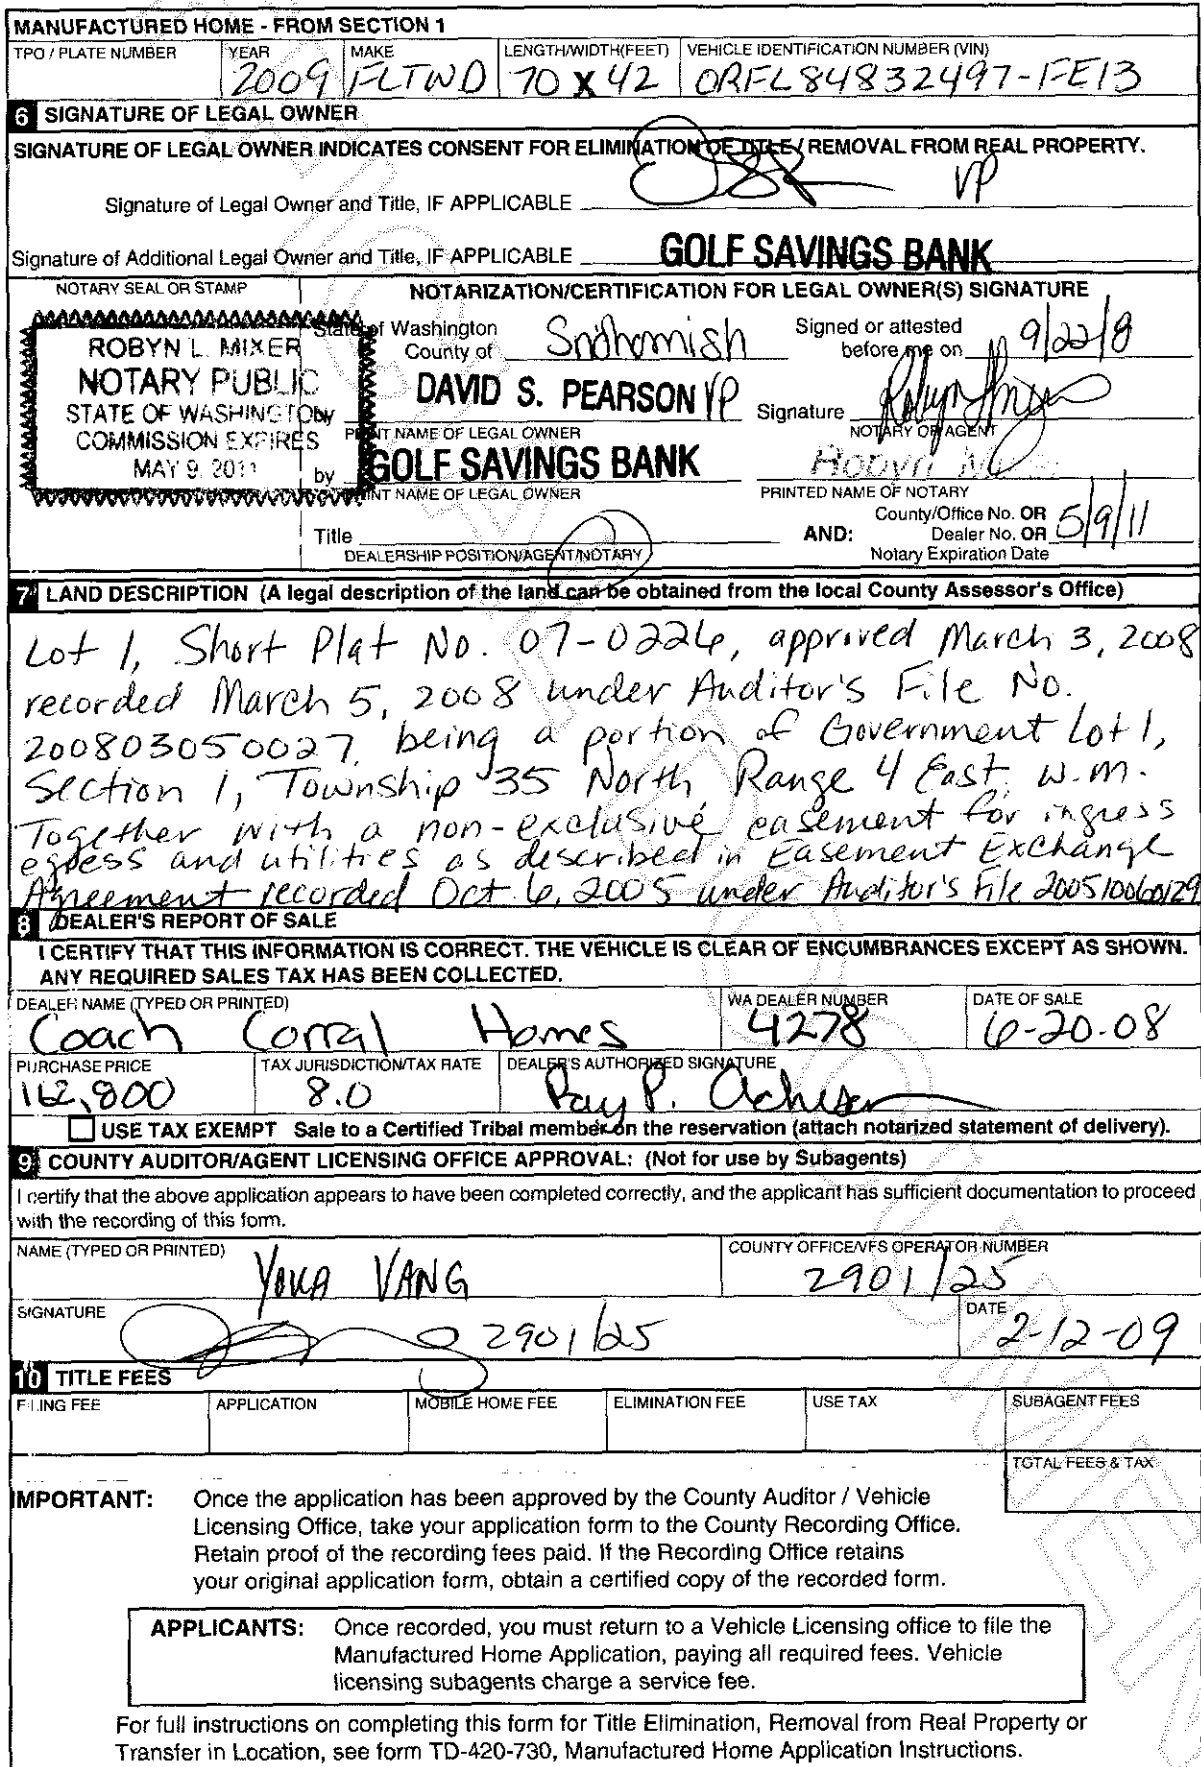 MANUFACTURED HOME - FROM SECTION 1
TPO / PLATE NUMBER YEAR MAKE LENGTH/WIDTH(FEET) VEHICLE IDENTIFICATION NUMBER (VIN)
2009 FLTWD 70 X 42 ORFL84832497-FE13
6 SIGNATURE OF LEGAL OWNER
SIGNATURE OF LEGAL OWNER INDICATES CONSENT FOR ELIMINATION OF TITLE / REMOVAL FROM REAL PROPERTY.
Signature of Legal Owner and Title, IF APPLICABLE VP
Signature of Additional Legal Owner and Title, IF APPLICABLE GOLF SAVINGS BANK
NOTARY SEAL OR STAMP NOTARIZATION/CERTIFICATION FOR LEGAL OWNER(S) SIGNATURE
ROBYN L. MIXER
NOTARY PUBLIC
STATE OF WASHINGTON
COMMISSION EXPIRES
MAY 9, 2011
State of Washington
County of Snohomish
Signed or attested
before me on 9/22/8
by DAVID S. PEARSON VP
PRINT NAME OF LEGAL OWNER
Signature
NOTARY OR AGENT
by GOLF SAVINGS BANK
PRINT NAME OF LEGAL OWNER
Robyn
PRINTED NAME OF NOTARY
Title
DEALERSHIP POSITION/AGENT/NOTARY
AND:
County/Office No. OR
Dealer No. OR 5/9/11
Notary Expiration Date
7 LAND DESCRIPTION (A legal description of the land can be obtained from the local County Assessor's Office)
Lot 1, Short Plat No. 07-0226, approved March 3, 2008
recorded March 5, 2008 under Auditor's File No.
200803050027, being a portion of Government Lot 1,
Section 1, Township 35 North, Range 4 East, W.M.
Together with a non-exclusive easement for ingress
egress and utilities as described in Easement Exchange
Agreement recorded Oct. 6, 2005 under Auditor's File 200510060129
8 DEALER'S REPORT OF SALE
I CERTIFY THAT THIS INFORMATION IS CORRECT. THE VEHICLE IS CLEAR OF ENCUMBRANCES EXCEPT AS SHOWN.
ANY REQUIRED SALES TAX HAS BEEN COLLECTED.
DEALER NAME (TYPED OR PRINTED) WA DEALER NUMBER DATE OF SALE
Coach Corral Homes 4278 6-20-08
PURCHASE PRICE TAX JURISDICTION/TAX RATE DEALER'S AUTHORIZED SIGNATURE
162,800 8.0 Ray P.
USE TAX EXEMPT Sale to a Certified Tribal member on the reservation (attach notarized statement of delivery).
9 COUNTY AUDITOR/AGENT LICENSING OFFICE APPROVAL: (Not for use by Subagents)
I certify that the above application appears to have been completed correctly, and the applicant has sufficient documentation to proceed
with the recording of this form.
NAME (TYPED OR PRINTED) COUNTY OFFICE/VFS OPERATOR NUMBER
VANG 2901/25
SIGNATURE DATE
2901/25 2-12-09
10 TITLE FEES
FILING FEE APPLICATION MOBILE HOME FEE ELIMINATION FEE USE TAX SUBAGENT FEES
TOTAL FEES & TAX
IMPORTANT: Once the application has been approved by the County Auditor / Vehicle
Licensing Office, take your application form to the County Recording Office.
Retain proof of the recording fees paid. If the Recording Office retains
your original application form, obtain a certified copy of the recorded form.
APPLICANTS: Once recorded, you must return to a Vehicle Licensing office to file the
Manufactured Home Application, paying all required fees. Vehicle
licensing subagents charge a service fee.
For full instructions on completing this form for Title Elimination, Removal from Real Property or
Transfer in Location, see form TD-420-730, Manufactured Home Application Instructions.